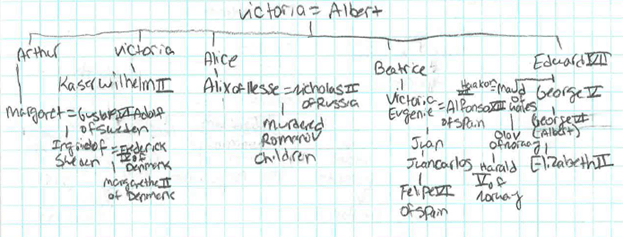 Victoria = Albert
Arthur
Victoria
Alice
Beatrice
Edward VII
Kaser Wilhelm II
Alix of Hesse = Nicholas II
of Russia
murdered
Romanov
children
Margaret = Gustaf VI Adolf
of Sweden
Ingrid of = Frederick
Sweden
IX of
Denmark
Margarethe II
of Denmark
Victoria
Eugenie = Alfonso XIII
of Spain
Juan
Juan carlos
Felipe VI
of Spain
Haakon = Maud
VII
of
Wales
Olav
of norway
Harald
V of
norway
George V
George VI
(Albert)
Elizabeth II